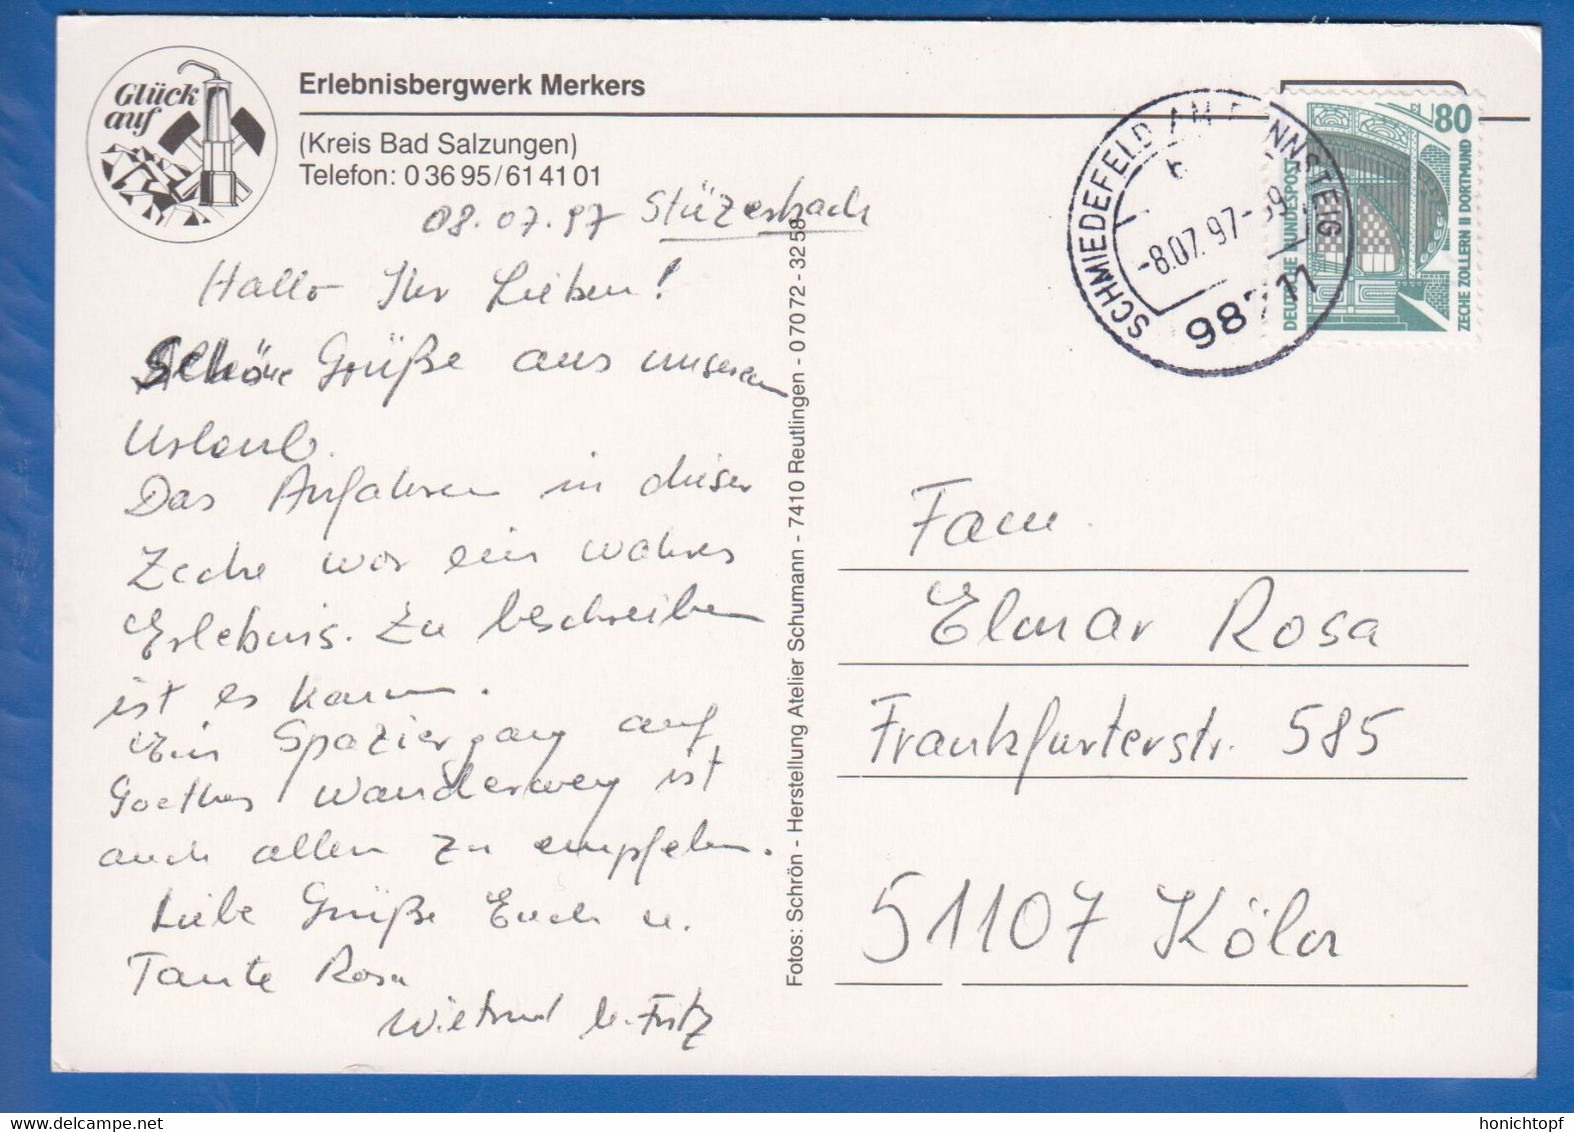 Glück
auf
Erlebnisbergwerk Merkers
(Kreis Bad Salzungen)
Telefon: 0 36 95/61 41 01
08.07.97 Stützerbach
Hallo Ihr Lieben!
Schöne Grüße aus unserem
Urlaub.
Das Anfahren in dieser
Zeche war ein wahres
Erlebnis. Zu beschreiben
ist es kaum.
Ein Spaziergang auf
Goethes Wanderweg ist
auch allen zu empfehlen.
Liebe Grüße Euch u.
Tante Rosa
Wiltrud u. Fritz
Fotos: Schrön - Herstellung Atelier Schumann - 7410 Reutlingen - 0 70 72 - 32 58
SCHMIEDEFELD AM RENNSTEIG
b
-8.07.97-
98711
80
DEUTSCHE BUNDESPOST
ZECHE ZOLLERN II DORTMUND
Fam.
Elmar Rosa
Frankfurterstr. 585
51107 Köln
honichtopf